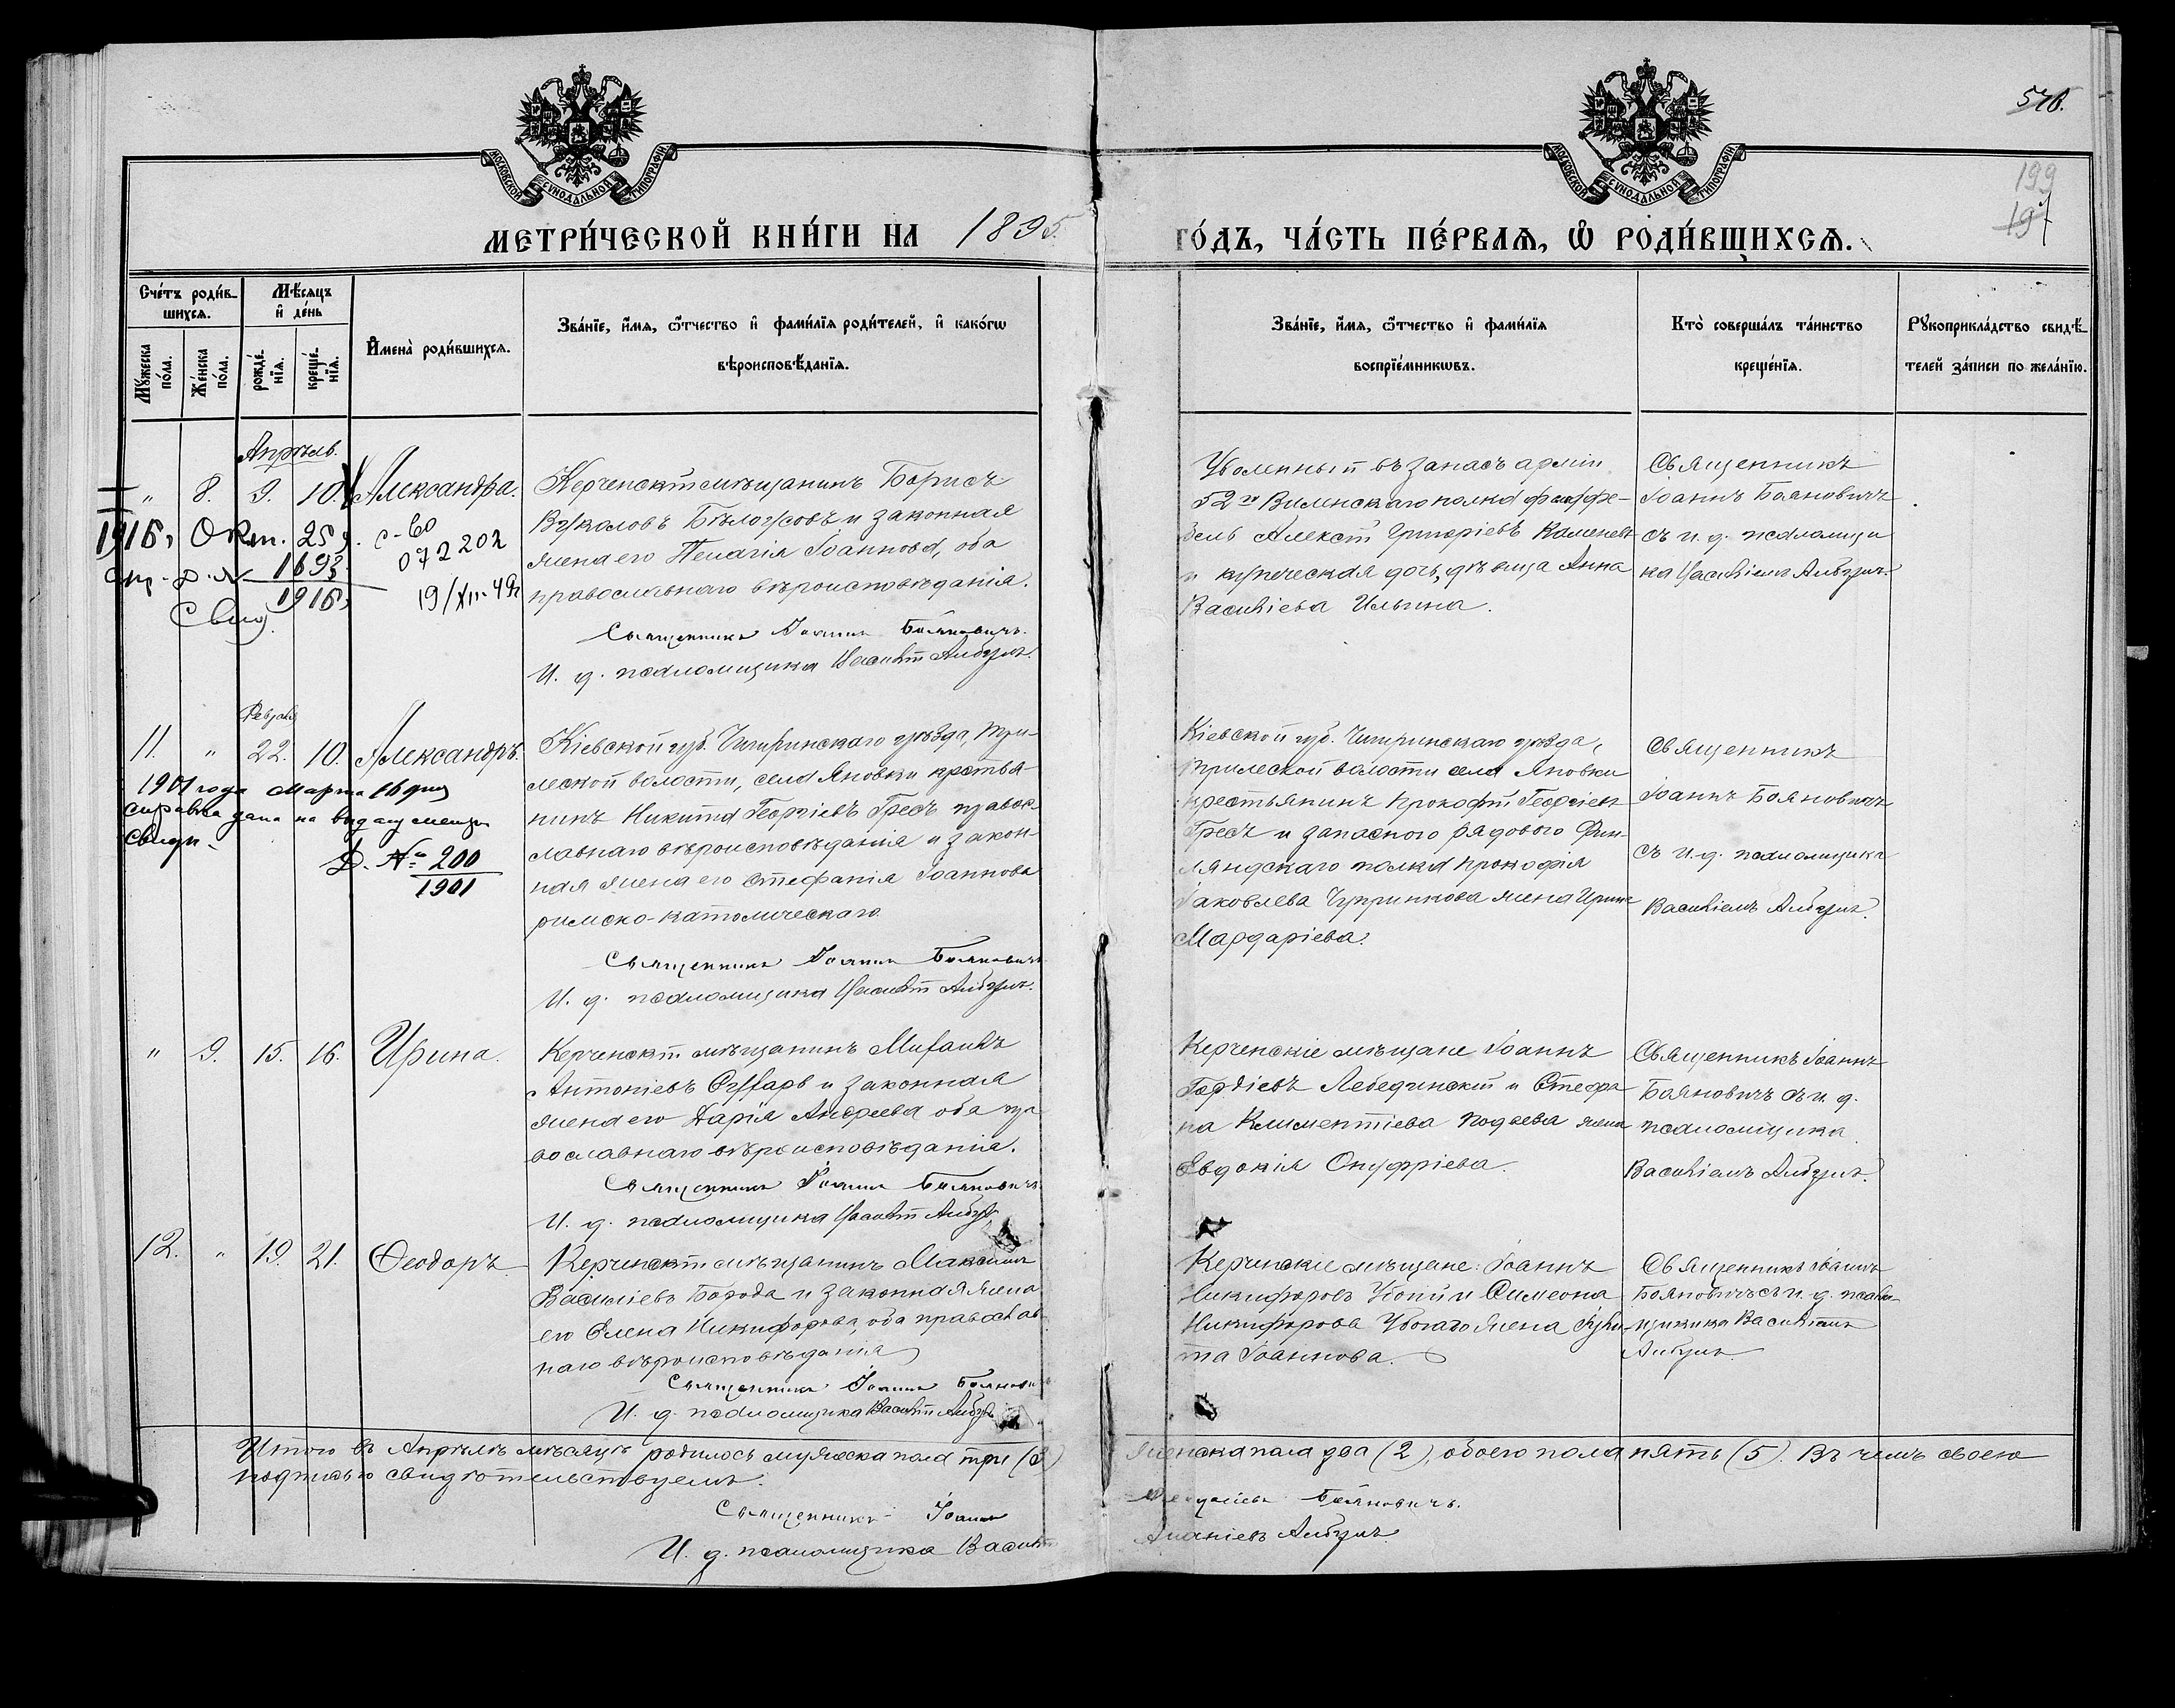 МОСКОВСКОЙ СѴНОДАЛЬНОЙ ТИПОГРАФІИ
МОСКОВСКОЙ СѴНОДАЛЬНОЙ ТИПОГРАФІИ
576.
199
197
МЕТРИ́ЧЕСКОЙ КНИ́ГИ НА 1895.
ГО́ДЪ, ЧА́СТЬ ПЕ́РВАѦ, Ѽ РОДИ́ВШИХСѦ.
Сче́тъ роди́в-
шихсѧ.
Мѣ́сѧцъ
и҆ де́нь
Мꙋ́жеска по́ла.
Же́нска по́ла.
рожде́-нїѧ.
креще́-нїѧ.
И҆мена̀ роди́вшихсѧ.
Зва́нїе, и҆́мѧ, ѻ҆́тчество и҆ фами́лїѧ роди́телей, и҆ како́гѡ
вѣроисповѣ́данїѧ.
Зва́нїе, и҆́мѧ, ѻ҆́тчество и҆ фами́лїѧ
воспрїе́мникѡвъ.
Кто̀ соверша́лъ та́инство
креще́нїѧ.
Рꙋкоприкла́дство свидѣ́-
телей за́писи по жела́нїю.
Апрѣль.
" 8. 9. 10. Александра.
1916, Окт. 25 д.
1693
1916
Свид.
с-во
072202
19/XII-49г
Керченскій мѣщанинъ Борисъ
Вуколовъ Бѣлоусовъ и законная
жена его Пелагія Іоаннова, оба
православнаго вѣроисповѣданія.
Священникъ Іоаннъ Бояновичъ.
И. д. псаломщика Василій Албулъ.
Уволенный въ запасъ арміи
52го Виленскаго полка фельдфе-
бель Алексій Григоріевъ Каменевъ
и купеческая дочь, дѣвица Анна
Василіева Ильина.
Священникъ
Іоаннъ Бояновичъ
съ и. д. псаломщи
ка Василіемъ Албулъ.
Февраля
11. " 22. 10. Александръ.
1901 года Марта 16 дня
справка дана на выдачу метр.
свидѣ.
Д. № 200
1901
Кіевской губ. Чигиринскаго уѣзда, Три-
лесской волости, села Яновки крестья-
нинъ Никита Георгіевъ Гресъ право-
славнаго вѣроисповѣданія и закон-
ная жена его Стефанія Іоаннова
римско-католическаго.
Священникъ Іоаннъ Бояновичъ
И. д. псаломщика Василій Албулъ.
Кіевской губ. Чигиринскаго уѣзда,
Трилесской волости села Яновки
крестьянинъ Прокофій Георгіевъ
Гресъ и запасного рядового Фин-
ляндскаго полка Прокофія
Іаковлева Чупринкова жена Ирина
Мардаріева.
Священникъ
Іоаннъ Бояновичъ
съ и. д. псаломщика
Василіемъ Албулъ.
" 9. 15. 16. Ирина.
Керченскій мѣщанинъ Михаилъ
Антоніевъ и законная
жена его Дарія Андреева оба пра
вославнаго вѣроисповѣданія.
Священникъ Іоаннъ Бояновичъ.
И. д. псаломщика Василій Албулъ
Керченскіе мѣщане Іоаннъ
Гордіевъ Лебединскій и Стефа
на Климентіева жена
Евдокія Онуфріева.
Священникъ Іоаннъ
Бояновичъ съ и. д.
псаломщика
Василіемъ Албулъ.
12. " 19. 21. Ѳеодоръ.
Керченскій мѣщанинъ Максимъ
Василіевъ Борода и законная жена
его Елена Никифорова, оба православ-
наго вѣроисповѣданія
Священникъ Іоаннъ Бояновичъ
И. д. псаломщика Василій Албулъ
Керченскіе мѣщане: Іоаннъ
Никифоровъ и Симеона
Никифорова Убогаго жена Іули-
та Іоаннова.
Священникъ Іоаннъ
Бояновичъ съ и. д. псало-
мщика Василіемъ
Албулъ.
Итого въ Апрѣлѣ мѣсяцѣ родилось мужеска пола три (3) женска пола два (2), обоего пола пять (5). Въ чемъ своею
подписью свидѣтельствуемъ.
Священникъ Іоаннъ Бояновичъ.
И. д. псаломщика Василій Ананіевъ Албулъ.